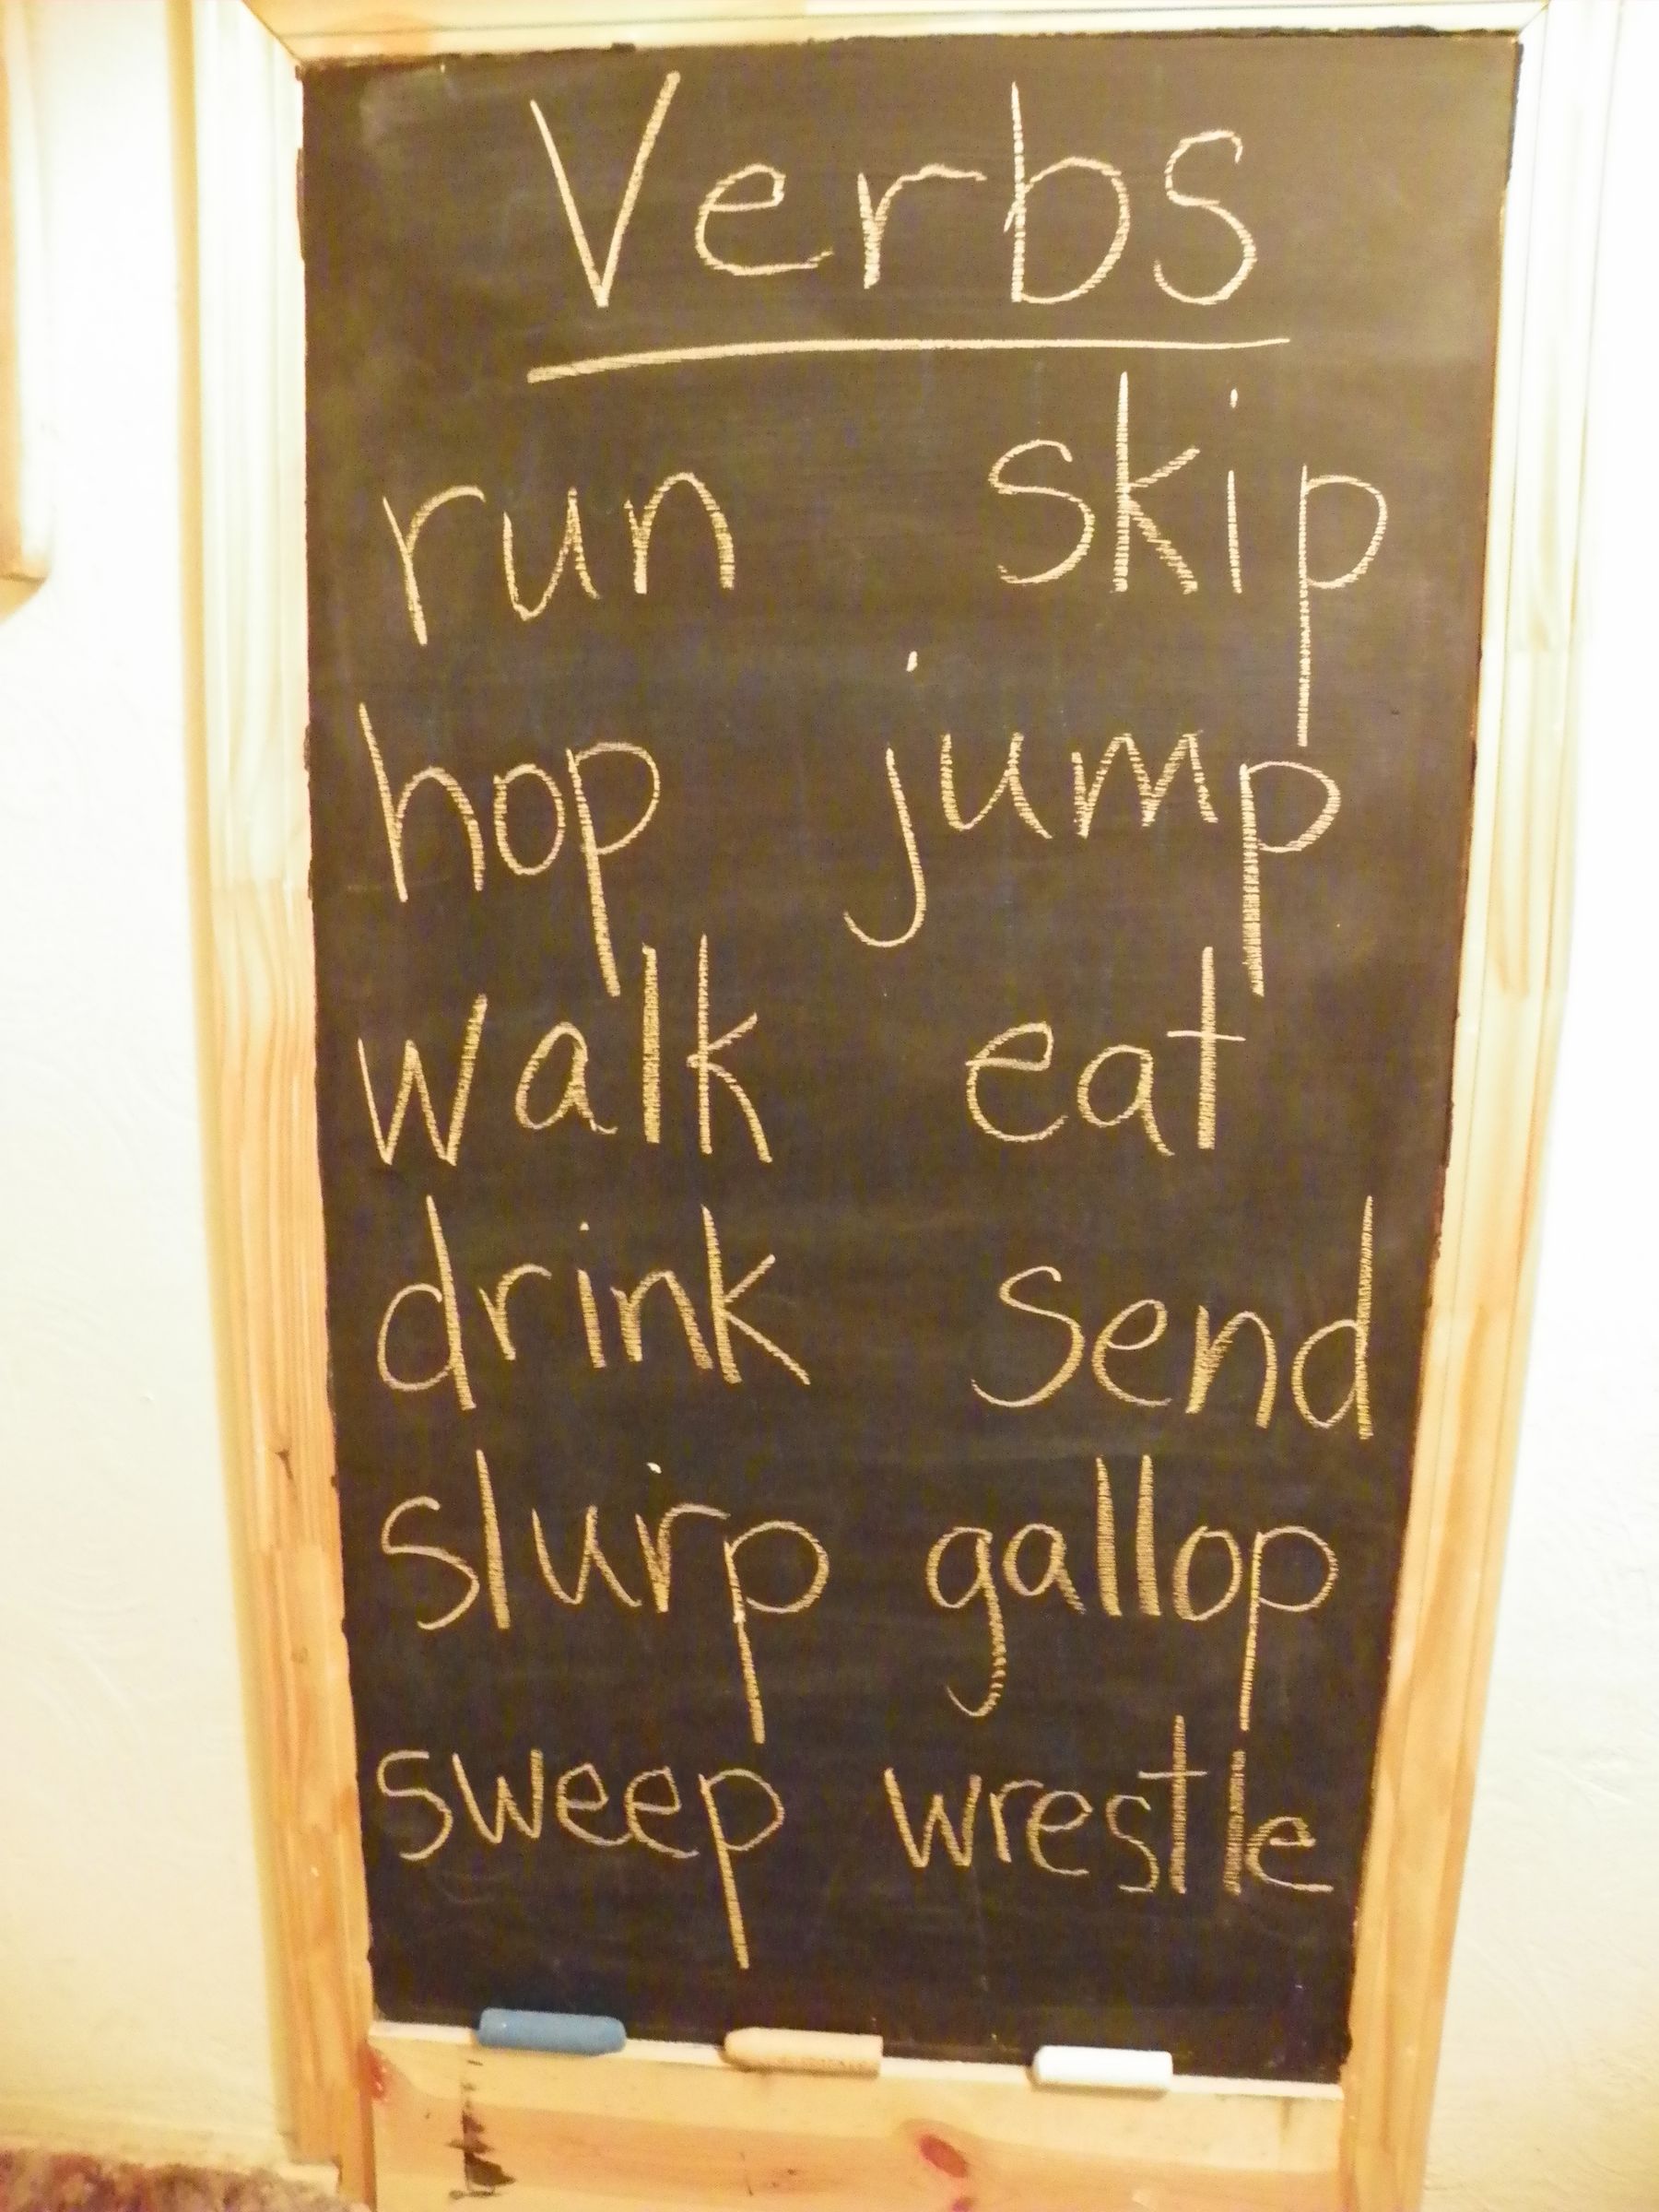 Verbs
run skip
hop jump
walk eat
drink send
slurp gallop
sweep wrestle